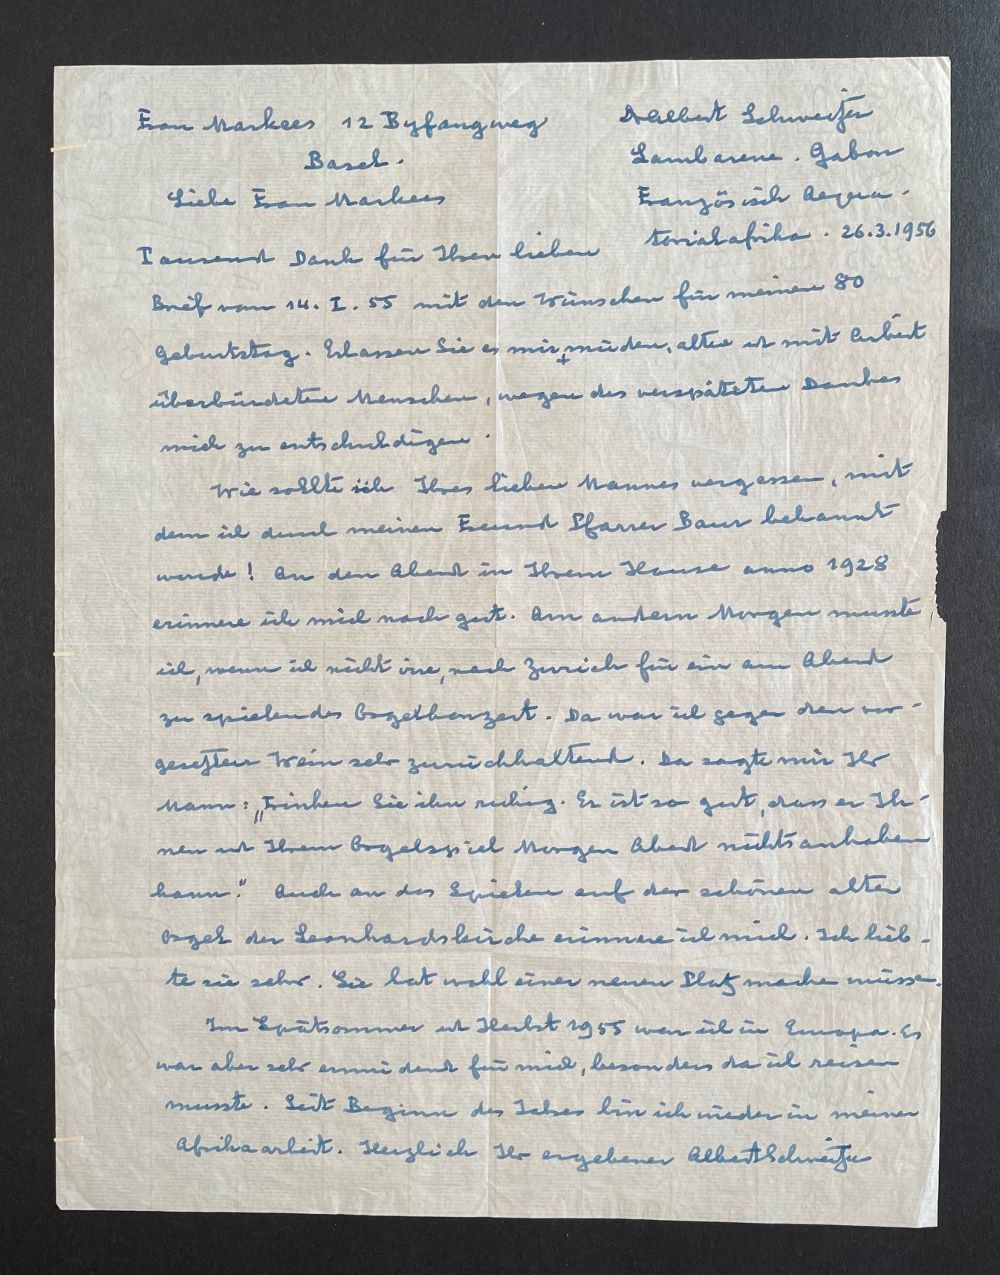 Frau Markees 12 Byfangweg
Basel.
Dr Albert Schweitzer
Lambarene. Gabon
Französisch Aequa-
torialafrika. 26.3.1956
Liebe Frau Markees
Tausend Dank für Ihren lieben
Brief vom 14. I. 55 mit den Wünschen für meinen 80
Geburtstag. Erlassen Sie es mir, + müden, alten u mit Arbeit
überbürdeten Menschen, wegen des verspäteten Dankes
mich zu entschuldigen.
Wie sollte ich Ihres lieben Mannes vergessen, mit
dem ich durch meinen Freund Pfarrer Baur bekannt
wurde! An den Abend in Ihrem Hause anno 1928
erinnere ich mich noch gut. Am andern Morgen musste
ich, wenn ich nicht irre, nach Zürich für ein am Abend
zu spielendes Orgelkonzert. Da war ich gegen den vor-
gesetzten Wein sehr zurückhaltend. Da sagte mir Ihr
Mann: „Trinken Sie ihn ruhig. Er ist so gut, dass er Ih-
nen u Ihrem Orgelspiel Morgen Abend nichts anhaben
kann." Auch an das Spielen auf der schönen alten
Orgel der Leonhardskirche erinnere ich mich. Ich lieb-
te sie sehr. Sie hat wohl einer neuen Platz machen müssen.
Im Spätsommer u Herbst 1955 war ich in Europa. Es
war aber sehr ermüdend für mich, besonders da ich reisen
musste. Seit Beginn des Jahres bin ich wieder in meiner
Afrikaarbeit. Herzlich Ihr ergebener Albert Schweitzer